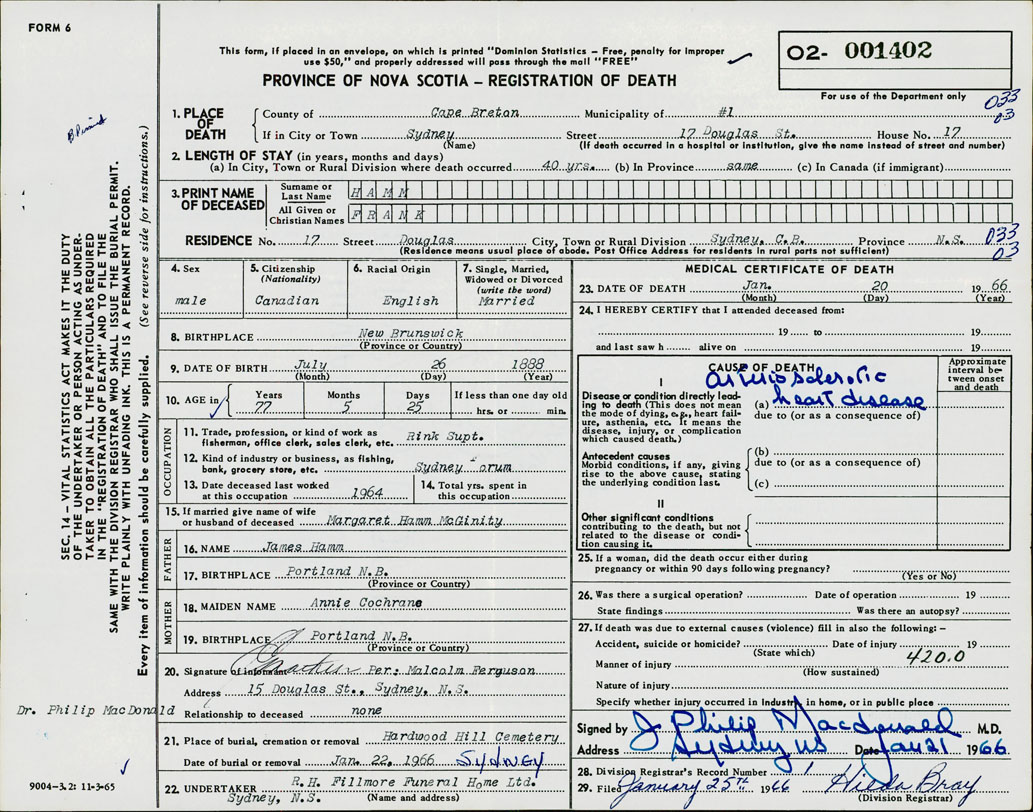 FORM 6
This form, if placed in an envelope, on which is printed "Dominion Statistics – Free, penalty for improper
use $50," and properly addressed will pass through the mail "FREE"
PROVINCE OF NOVA SCOTIA – REGISTRATION OF DEATH
02- 001402
For use of the Department only
033
03
1. PLACE OF DEATH
County of Cape Breton Municipality of #1
If in City or Town Sydney Street 17 Douglas St. House No. 17
(Name) (If death occurred in a hospital or institution, give the name instead of street and number)
2. LENGTH OF STAY (in years, months and days)
(a) In City, Town or Rural Division where death occurred 40 yrs. (b) In Province same (c) In Canada (if immigrant)
3. PRINT NAME OF DECEASED
Surname or Last Name HAMM
All Given or Christian Names FRANK
RESIDENCE No. 17 Street Douglas City, Town or Rural Division Sydney, C.B. Province N.S.
033
03
(Residence means usual place of abode. Post Office Address for residents in rural parts not sufficient)
4. Sex
male
5. Citizenship
(Nationality)
Canadian
6. Racial Origin
English
7. Single, Married,
Widowed or Divorced
(write the word)
Married
8. BIRTHPLACE New Brunswick
(Province or Country)
9. DATE OF BIRTH July 26 1888
(Month) (Day) (Year)
10. AGE in
Years Months Days If less than one day old
77 5 25 hrs. or min.
OCCUPATION
11. Trade, profession, or kind of work as
fisherman, office clerk, sales clerk, etc. Rink Supt.
12. Kind of industry or business, as fishing,
bank, grocery store, etc. Sydney orum
13. Date deceased last worked
at this occupation 1964
14. Total yrs. spent in
this occupation
15. If married give name of wife
or husband of deceased Margaret Hamm McGinity
FATHER
16. NAME James Hamm
17. BIRTHPLACE Portland N.B.
(Province or Country)
MOTHER
18. MAIDEN NAME Annie Cochrane
19. BIRTHPLACE Portland N.B.
(Province or Country)
20. Signature of informant Per: Malcolm Ferguson
Address 15 Douglas St., Sydney, N.S.
Dr. Philip MacDonald
Relationship to deceased none
21. Place of burial, cremation or removal Hardwood Hill Cemetery
Date of burial or removal Jan. 22, 1966 SYDNEY
22. UNDERTAKER R.H. Fillmore Funeral Home Ltd.
Sydney, N.S. (Name and address)
MEDICAL CERTIFICATE OF DEATH
23. DATE OF DEATH Jan. 20 1966
(Month) (Day) (Year)
24. I HEREBY CERTIFY that I attended deceased from:
19 to 19
and last saw h alive on 19
CAUSE OF DEATH
Approximate interval between onset and death
I
arteriosclerotic
Disease or condition directly lead-
ing to death (This does not mean
the mode of dying, e.g., heart fail-
ure, asthenia, etc. It means the
disease, injury, or complication
which caused death.)
(a) heart disease
due to (or as a consequence of)
Antecedent causes
Morbid conditions, if any, giving
rise to the above cause, stating
the underlying condition last.
(b)
due to (or as a consequence of)
(c)
II
Other significant conditions
contributing to the death, but not
related to the disease or condi-
tion causing it.
25. If a woman, did the death occur either during
pregnancy or within 90 days following pregnancy?
(Yes or No)
26. Was there a surgical operation? Date of operation 19
State findings Was there an autopsy?
27. If death was due to external causes (violence) fill in also the following: –
Accident, suicide or homicide? Date of injury 19
(State which)
420.0
Manner of injury
(How sustained)
Nature of injury
Specify whether injury occurred in Industry, in home, or in public place
Signed by J Philip Macdonald M.D.
Address Sydney NS Date Jan 21 1966
28. Division Registrar's Record Number 1
29. Filed January 25th 1966 Hilda Bray
(Division Registrar)
SEC. 14 – VITAL STATISTICS ACT MAKES IT THE DUTY
OF THE UNDERTAKER OR PERSON ACTING AS UNDER-
TAKER TO OBTAIN ALL THE PARTICULARS REQUIRED
IN THE "REGISTRATION OF DEATH" AND TO FILE THE
SAME WITH THE DIVISION REGISTRAR WHO SHALL ISSUE THE BURIAL PERMIT.
WRITE PLAINLY WITH UNFADING INK. THIS IS A PERMANENT RECORD.
Every item of information should be carefully supplied. (See reverse side for instructions.)
9004-3.2: 11-3-65